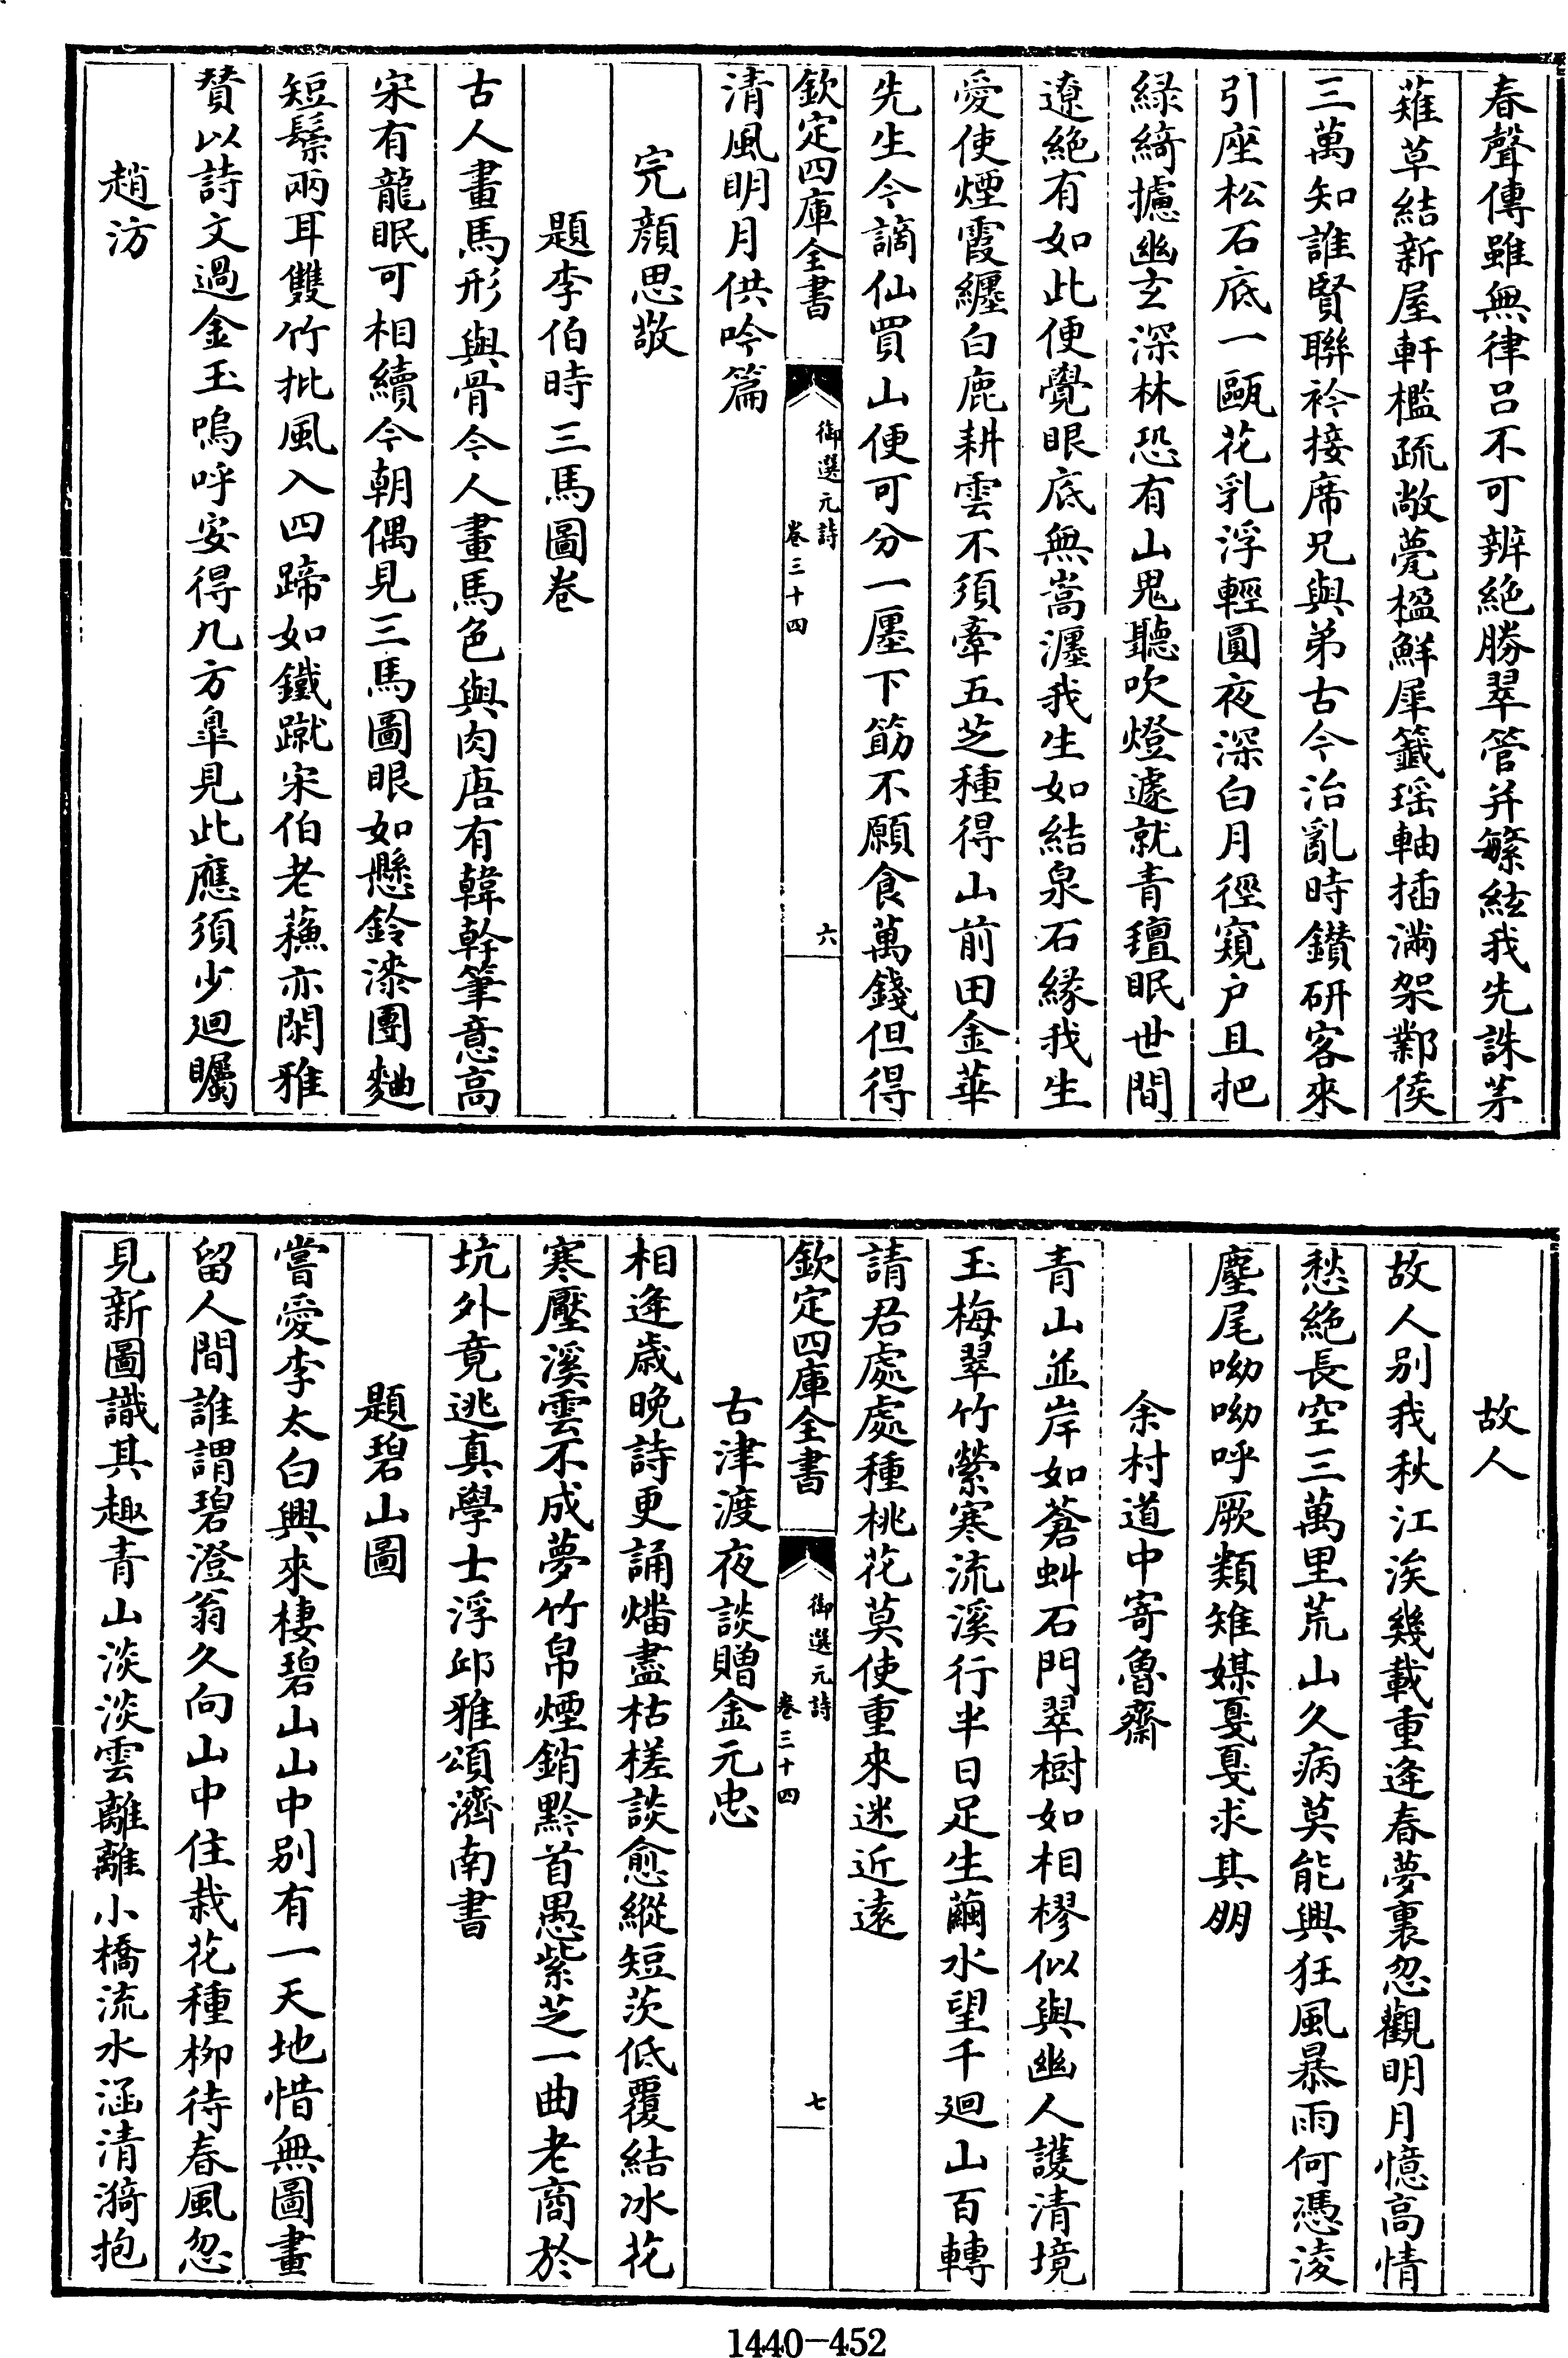 春聲傳雖無律呂不可辨絶勝翠管并繁絃我先誅茅
薙草結新屋軒檻疏敞甍楹鮮犀籤瑶軸插滿架鄴侯
三萬知誰賢聯衿接席兄與弟古今治亂時鑽研客來
引座松石底一甌花乳浮輕圓夜深白月徑窺户且把
緑綺攄幽玄深林恐有山鬼聽吹燈遽就青氊眠世間
遼絶有如此便覺眼底無嵩瀍我生如結泉石縁我生
愛使煙霞纒白鹿耕雲不須牽五芝種得山前田金華
先生今謫仙買山便可分一廛下筯不願食萬錢但得
欽定四庫全書
御選元詩
卷三十四
六
清風明月供吟篇
完顔思敬
題李伯時三馬圖卷
古人畫馬形與骨今人畫馬色與肉唐有韓幹筆意高
宋有龍眠可相續今朝偶見三馬圖眼如懸鈴漆團麯
短鬃兩耳雙竹批風入四蹄如鐵蹴宋伯老蘓亦閑雅
賛以詩文過金玉嗚呼安得九方臯見此應須少迴矚
趙汸
故人
故人别我秋江涘幾載重逢春夢裏忽觀明月憶高情
愁絶長空三萬里荒山久病莫能興狂風暴雨何憑淩
麈尾呦呦呼厥類雉媒戛戛求其朋
余村道中寄魯齋
青山並岸如蒼虯石門翠樹如相樛似與幽人護清境
玉梅翠竹縈寒流溪行半日足生繭水望千迴山百轉
請君處處種桃花莫使重來迷近遠
欽定四庫全書
御選元詩
卷三十四
七
古津渡夜談贈金元忠
相逢歳晚詩更誦燔盡枯槎談愈縱短茨低覆結冰花
寒壓溪雲不成夢竹帛煙銷黔首愚紫芝一曲老商於
坑外竟逃真學士浮邱雅頌濟南書
題碧山圖
嘗愛李太白興來棲碧山山中别有一天地惜無圖畫
留人間誰謂碧澄翁久向山中住栽花種柳待春風忽
見新圖識其趣青山淡淡雲離離小橋流水涵清漪抱
1440-452